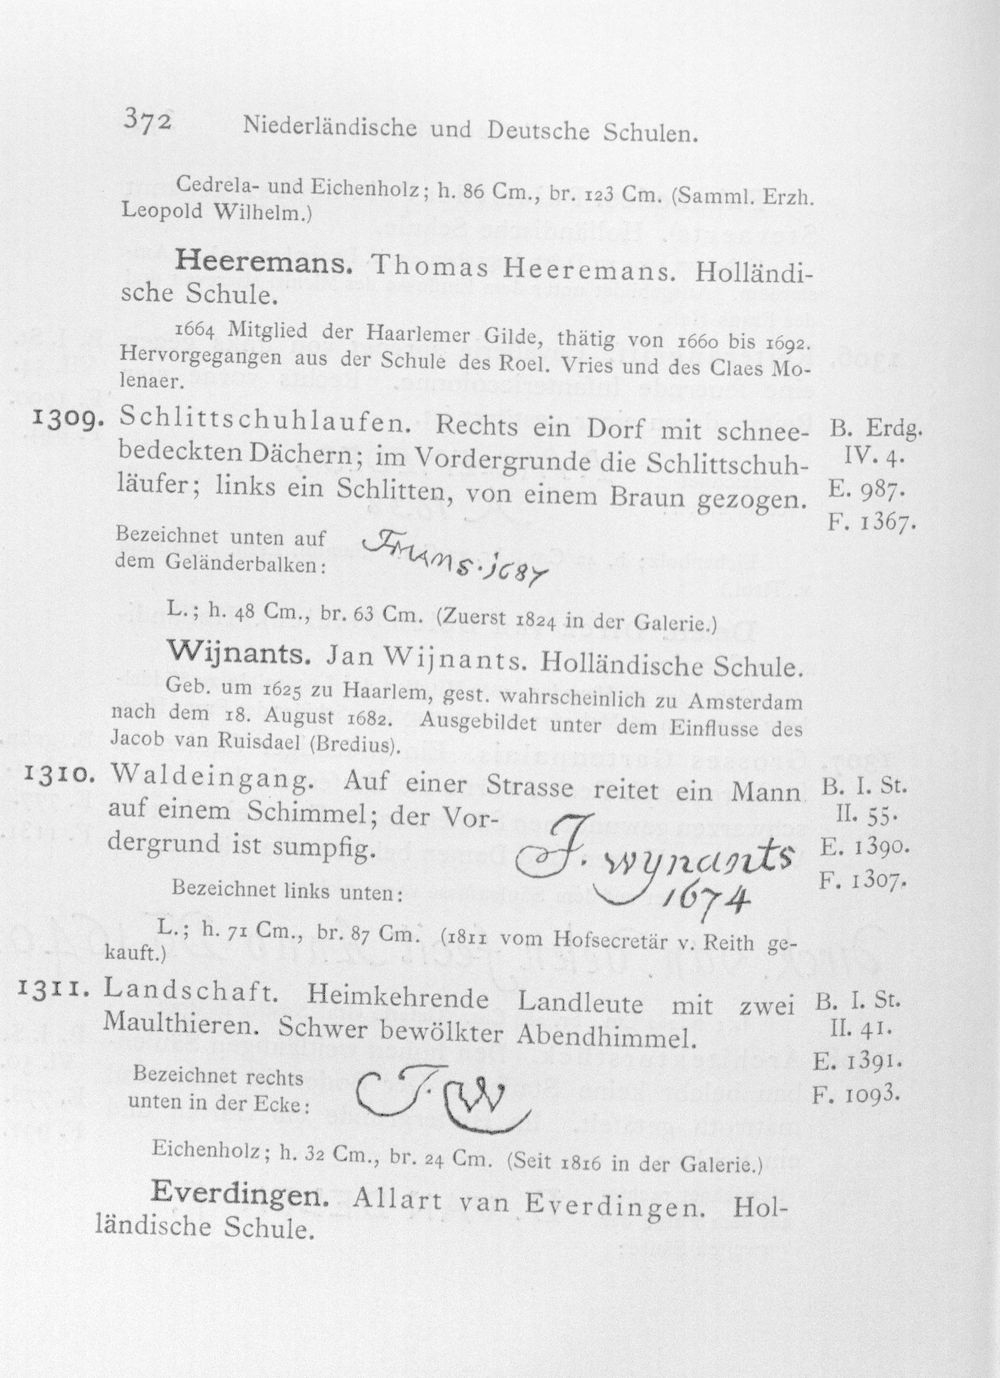 372 Niederländische und Deutsche Schulen.
Cedrela- und Eichenholz; h. 86 Cm., br. 123 Cm. (Samml. Erzh.
Leopold Wilhelm.)
Heeremans. Thomas Heeremans. Holländi-
sche Schule.
1664 Mitglied der Haarlemer Gilde, thätig von 1660 bis 1692.
Hervorgegangen aus der Schule des Roel. Vries und des Claes Mo-
lenaer.
1309. Schlittschuhlaufen. Rechts ein Dorf mit schnee- B. Erdg.
bedeckten Dächern; im Vordergrunde die Schlittschuh- IV. 4.
läufer; links ein Schlitten, von einem Braun gezogen. E. 987.
F. 1367.
Bezeichnet unten auf
dem Geländerbalken: 1687
L.; h. 48 Cm., br. 63 Cm. (Zuerst 1824 in der Galerie.)
Wijnants. Jan Wijnants. Holländische Schule.
Geb. um 1625 zu Haarlem, gest. wahrscheinlich zu Amsterdam
nach dem 18. August 1682. Ausgebildet unter dem Einflusse des
Jacob van Ruisdael (Bredius).
1310. Waldeingang. Auf einer Strasse reitet ein Mann B. I. St.
auf einem Schimmel; der Vor- II. 55.
dergrund ist sumpfig. J. wynants E. 1390.
1674 F. 1307.
Bezeichnet links unten:
L.; h. 71 Cm., br. 87 Cm. (1811 vom Hofsecretär v. Reith ge-
kauft.)
1311. Landschaft. Heimkehrende Landleute mit zwei B. I. St.
Maulthieren. Schwer bewölkter Abendhimmel. II. 41.
E. 1391.
Bezeichnet rechts
unten in der Ecke: J. W F. 1093.
Eichenholz; h. 32 Cm., br. 24 Cm. (Seit 1816 in der Galerie.)
Everdingen. Allart van Everdingen. Hol-
ländische Schule.